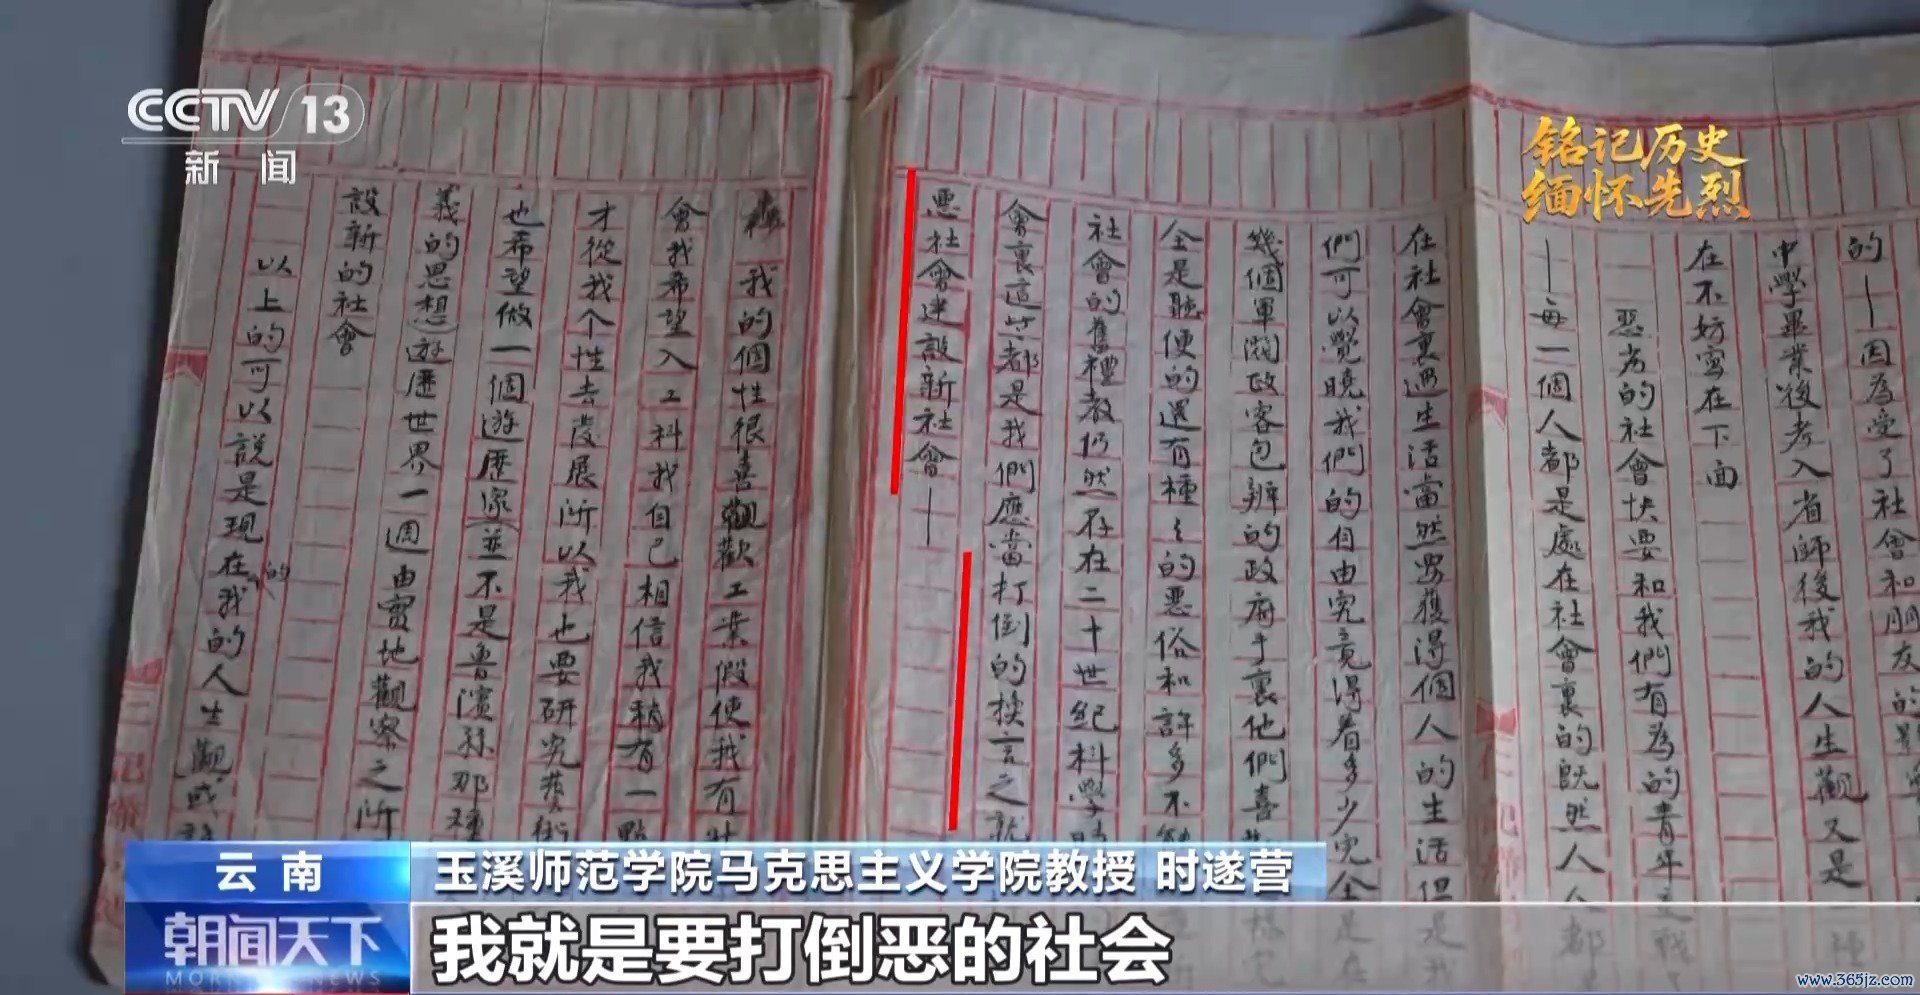 CCTV 13
新闻
铭记历史
缅怀先烈
的—因為受了社會和朋友的
中學畢業後考入省師後我的人生觀又是
在不妨寫在下面
惡劣的社會快要和我們有為的青年
—每一個人都是處在社會裏的既然人人都
在社會裏過生活當然要獲得個人的生活但是我
們可以覺曉我們的自由究竟得着多少完全是在
幾個軍閥政客包辦的政府手裏他們喜
全是聽便的還有種々的惡俗和許多不
社會的舊禮教仍然存在二十世紀科學
會裏這些都是我們應當打倒的換言之就
惡社會建設新社會—
我的個性很喜觀歡工業假使我有
會我希望入工科我自己相信我稍有一點
才從我个性去發展所以我也要研究藝術
也希望做一個遊歷家(並不是魯濱孫那種
義的思想)遊歷世界一週由實地觀察之所
設新的社會
以上的可以說是現在的我的人生觀或許
云南
玉溪师范学院马克思主义学院教授 时遂营
朝闻天下
MORNING NEWS
我就是要打倒恶的社会
www.365jz.com